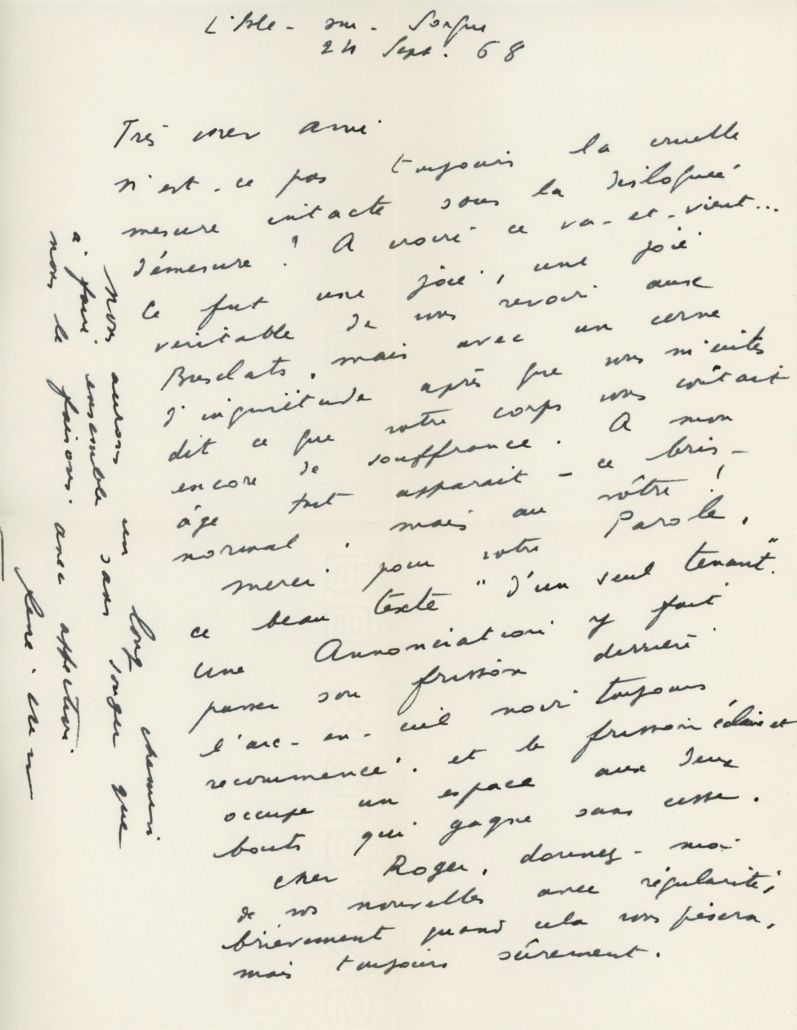 L'Isle-sur-Sorgue
24 Sept. 68
Très cher ami
N'est-ce pas toujours la cruelle
mesure intacte sous la disloquée
démesure ? A croire ce va-et-vient...
Ce fut une joie, une joie
véritable de vous revoir aux
Busclats, mais avec un cerne
d'inquiétude après que vous m'eûtes
dit ce que votre corps vous coûtait
encore de souffrance. A mon
âge tout apparait - ce bris -
normal, mais au vôtre !
Merci pour votre Parole,
ce beau texte "d'un seul tenant".
Une Annonciation y fait
passer son frisson derrière
l'arc-en-ciel noir toujours
recommencé. et le frisson éclaire et
occupe un espace aux deux
bouts qui gagne sans cesse.
Cher Roger, donnez-moi
de vos nouvelles avec régularité,
brièvement quand cela vous pèsera,
mais toujours sûrement.
Nous aurons un long chemin
à faire ensemble sans songer que
nous le faisons. avec affection.
René Char